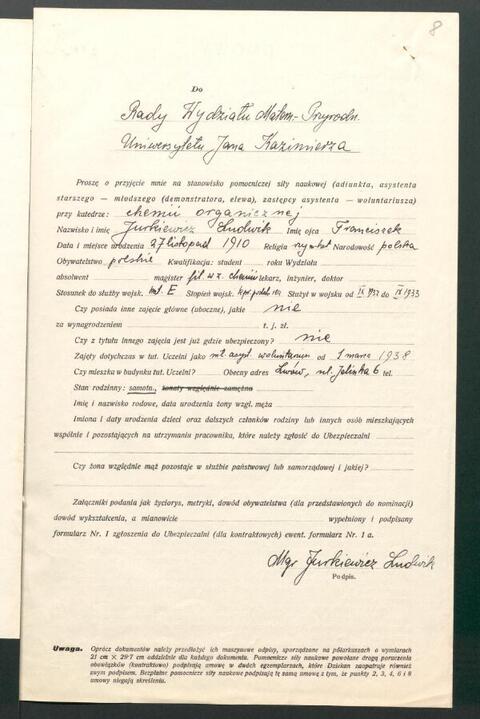 8
Do
Rady Wydziału Matem.-Przyrodn.
Uniwersytetu Jana Kazimierza
Proszę o przyjęcie mnie na stanowisko pomocniczej siły naukowej (adiunkta, asystenta
starszego — młodszego (demonstratora, elewa), zastępcy asystenta — woluntariusza)
przy katedrze: chemii organicznej
Nazwisko i imię Jurkiewicz Ludwik Imię ojca Franciszek
Data i miejsce urodzenia 27 listopad 1910 Religia rzymkat Narodowość polska
Obywatelstwo polskie Kwalifikacja: student roku Wydziału
absolwent magister fil. w z. chemii lekarz, inżynier, doktor
Stosunek do służby wojsk. kat. E Stopień wojsk. Służył w wojsku od IX 1932 do IX 1933
Czy posiada inne zajęcie główne (uboczne), jakie nie
za wynagrodzeniem t. j. zł.
Czy z tytułu innego zajęcia jest już gdzie ubezpieczony? nie
Zajęty dotychczas w tut. Uczelni jako mł. asyst. woluntarium od 1 marca 1938
Czy mieszka w budynku tut. Uczelni? Obecny adres Lwów, ul. 6 tel.
Stan rodzinny: samotn., żonaty względnie zamężna
Imię i nazwisko rodowe, data urodzenia żony wzgl. męża
Imiona i daty urodzenia dzieci oraz dalszych członków rodziny lub innych osób mieszkających
wspólnie i pozostających na utrzymaniu pracownika, które należy zgłosić do Ubezpieczalni
Czy żona względnie mąż pozostaje w służbie państwowej lub samorządowej i jakiej?
Załączniki podania jak życiorys, metryki, dowód obywatelstwa (dla przedstawionych do nominacji)
dowód wykształcenia, a mianowicie wypełniony i podpisany
formularz Nr. I zgłoszenia do Ubezpieczalni (dla kontraktowych) ewent. formularz Nr. 1 a.
Mgr Jurkiewicz Ludwik
Podpis.
Uwaga. Oprócz dokumentów należy przedłożyć ich maszynowe odpisy, sporządzane na półarkuszach o wymiarach
21 cm × 29·7 cm oddzielnie dla każdego dokumentu. Pomocnicze siły naukowe powołane drogą poruczenia
obowiązków (kontraktowo) podpisują umowę w dwóch egzemplarzach, które Dziekan zaopatruje również
swym podpisem. Bezpłatne pomocnicze siły naukowe podpisują tę samą umowę z tym, że punkty 2, 3, 4, 6 i 8
umowy ulegają skreśleniu.